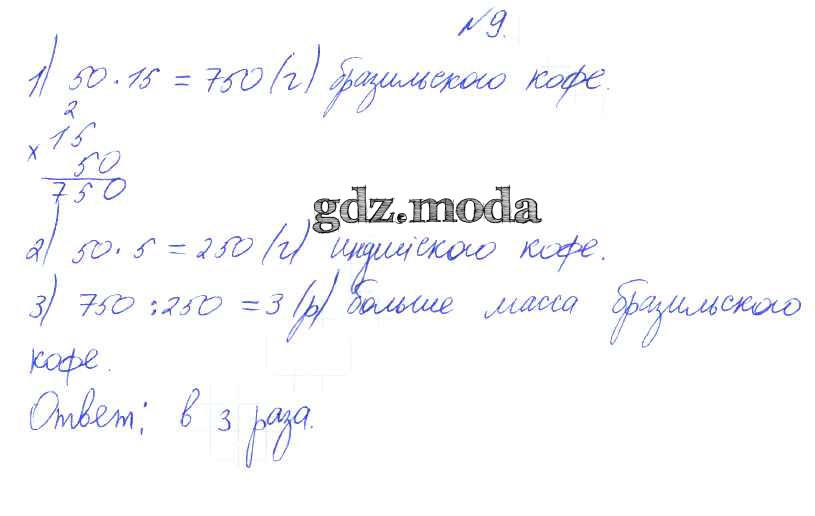 №9.
1) 50 · 15 = 750 (г) бразильского кофе.
2
× 15
50
750
gdz.moda
2) 50 · 5 = 250 (г) индийского кофе.
3) 750 : 250 = 3 (р) больше масса бразильского
кофе.
Ответ: в 3 раза.